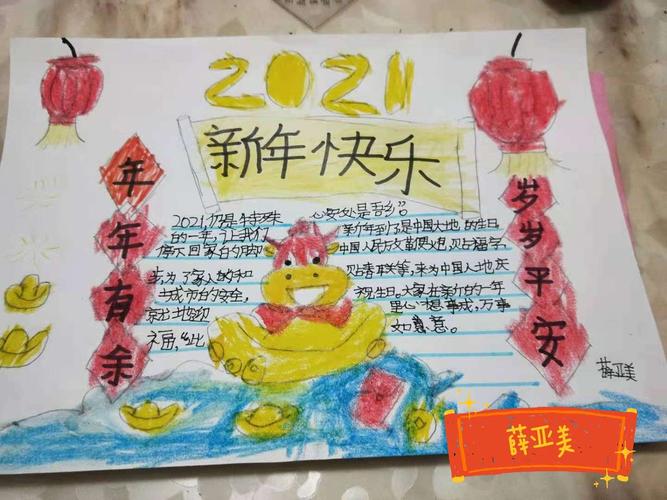 2021
新年快乐
年年有余
2021,仍是特殊
的一年,它让我们
停下回家的
步,为了家人的和
城市的安全,
就地
福,“此
心安处是吾乡”。
新年到了是中国大地的生日
中国人民 火炮,贴福字,
贴春联等,来为中国大地庆
祝生日。大家在新的一年
里心想事成,万事
如意。
岁岁平安
薛亚美
薛亚美